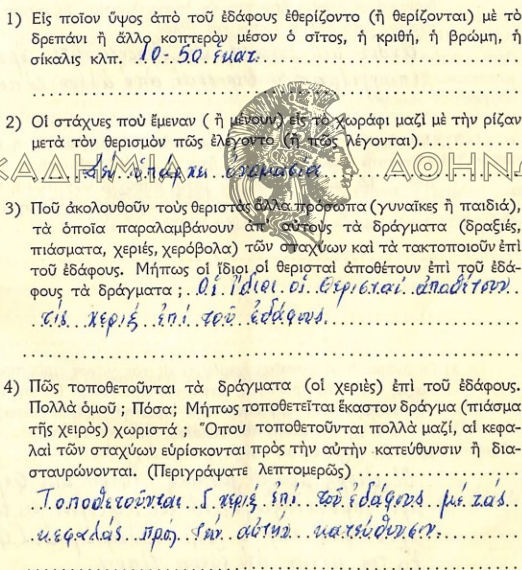 1) Εἰς ποῖον ὕψος ἀπὸ τοῦ ἐδάφους ἐθερίζοντο (ἢ θερίζονται) μὲ τὸ
δρεπάνι ἢ ἄλλο κοπτερὸν μέσον ὁ σῖτος, ἡ κριθή, ἡ βρώμη, ἡ
σίκαλις κλπ. 10-50 ἑκατ.
2) Οἱ στάχυες ποὺ ἔμεναν ( ἢ μένουν) εἰς τὸ χωράφι μαζὶ μὲ τὴν ρίζαν
μετὰ τὸν θερισμὸν πῶς ἐλέγοντο (ἢ πῶς λέγονται).
Δὲν ὑπάρχει ὀνομασία
ΑΚΑΔΗΜΙΑ ΑΘΗΝΩ
3) Ποῦ ἀκολουθοῦν τοὺς θεριστὰς ἄλλα πρόσωπα (γυναῖκες ἢ παιδιά),
τὰ ὁποῖα παραλαμβάνουν ἀπ' αὐτοὺς τὰ δράγματα (δραξιές,
πιάσματα, χεριές, χερόβολα) τῶν σταχύων καὶ τὰ τακτοποιοῦν ἐπὶ
τοῦ ἐδάφους. Μήπως οἱ ἴδιοι οἱ θερισταὶ ἀποθέτουν ἐπὶ τοῦ ἐδά-
φους τὰ δράγματα ; Οἱ ἴδιοι οἱ θερισταί ἀποθέτουν
τὶς χεριές ἐπὶ τοῦ ἐδάφους
4) Πῶς τοποθετοῦνται τὰ δράγματα (οἱ χεριὲς) ἐπὶ τοῦ ἐδάφους.
Πολλὰ ὁμοῦ ; Πόσα; Μήπως τοποθετεῖται ἕκαστον δράγμα (πιάσμα
τῆς χειρὸς) χωριστά ; Ὅπου τοποθετοῦνται πολλὰ μαζί, αἱ κεφα-
λαὶ τῶν σταχύων εὑρίσκονται πρὸς τὴν αὐτὴν κατεύθυνσιν ἢ δια-
σταυρώνονται. (Περιγράψατε λεπτομερῶς)
Τοποθετοῦνται 5 χεριές ἐπὶ τοῦ ἐδάφους μέ τάς
κεφαλάς πρός τήν αὐτήν κατεύθυνσιν.